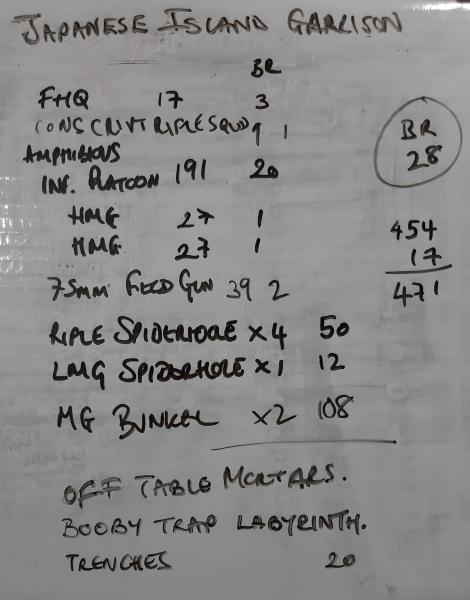 JAPANESE ISLAND GARRISON
BR
FHQ 17 3
CONSCRIVT RIPLE SQUD 9 1
AMPHIBIOUS
INF. PLATOON 191 20
HMG 27 1
HMG 27 1
75MM FIELD GUN 39 2
RIPLE SPIDERHOLE x 4 50
LMG SPIDERHOLE x 1 12
MG BUNKER x2 108
BR
28
454
17
471
OFF TABLE MORTARS.
BOOBY TRAP LABYRINTH.
TRENCHES 20